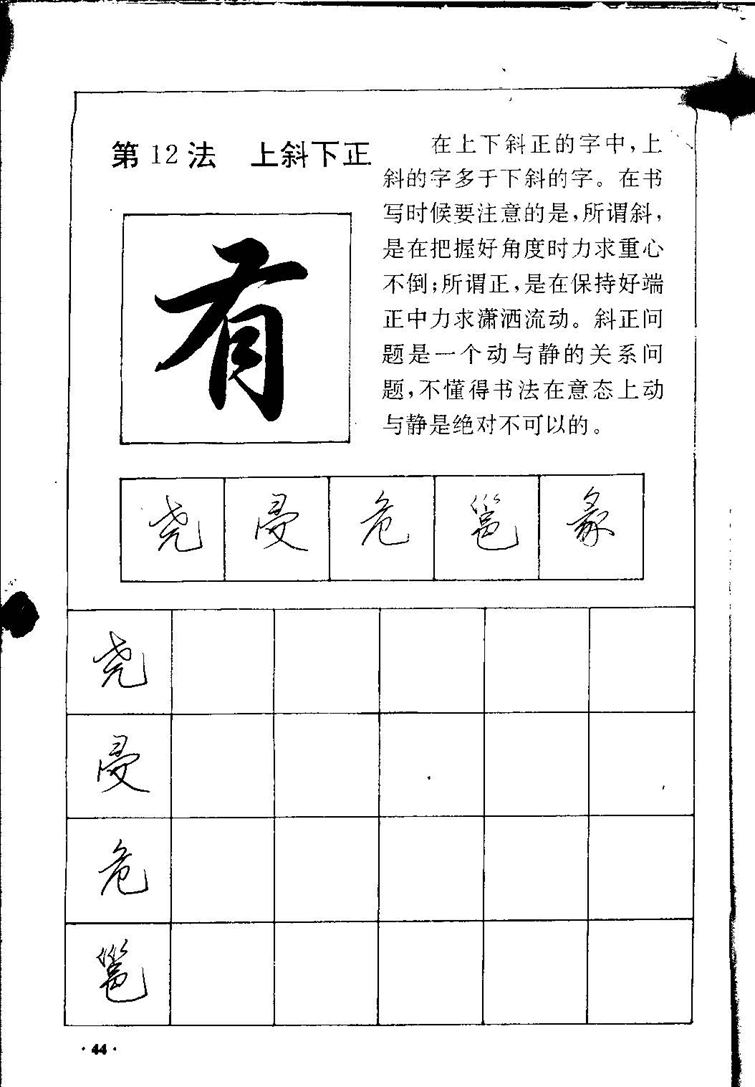 第12法 上斜下正
在上下斜正的字中,上
斜的字多于下斜的字。在书
写时候要注意的是,所谓斜,
是在把握好角度时力求重心
不倒;所谓正,是在保持好端
正中力求潇洒流动。斜正问
题是一个动与静的关系问
题,不懂得书法在意态上动
与静是绝对不可以的。
有
尧 曼 危 邕 彖
尧
曼
危
邕
·44·